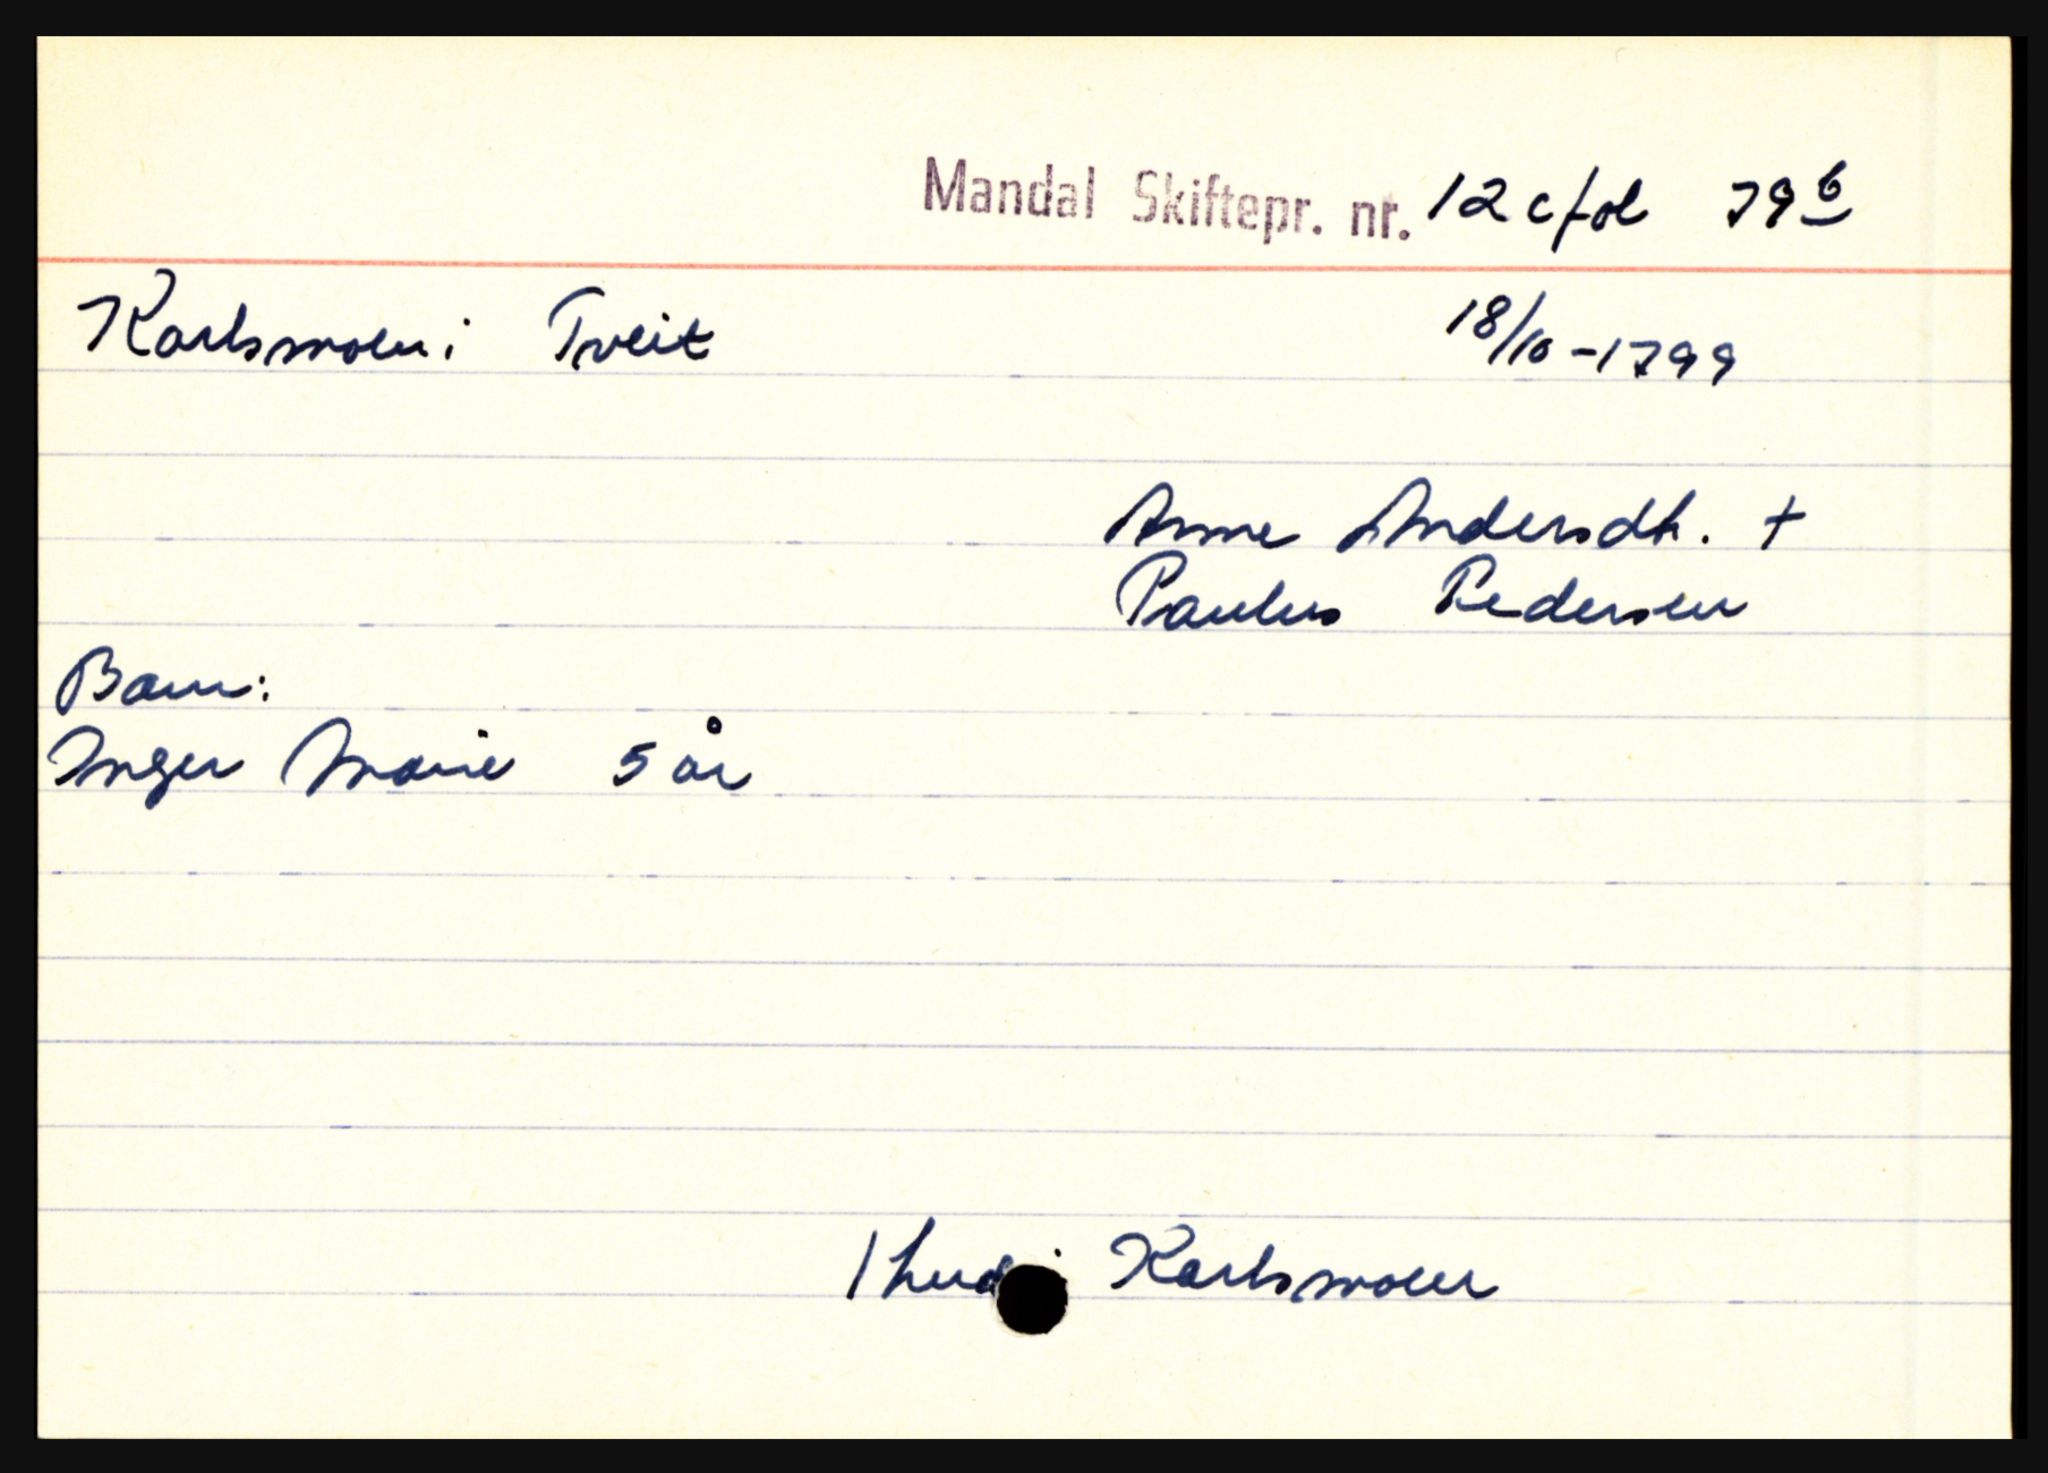 Mandal Skiftepr. nr. 12 c fol 79 b
Karlsmoen i Tveit 18/10-1799
Anne Andersdtr. +
Paulus Pedersen
Barn:
Inger Marie 5 år
1 hud i Karlsmoen